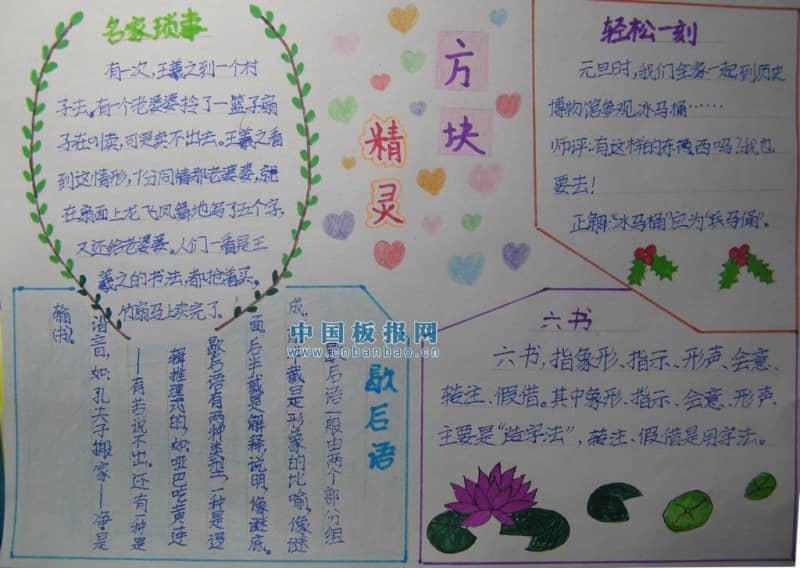 名家琐事
有一次,王羲之到一个村
子去。有一个老婆婆拎了一篮子扇
子在叫卖,可是卖不出去。王羲之看
到这情形,十分同情那老婆婆,就
在扇面上龙飞凤舞地写了五个字,
又还给老婆婆。人们一看是王
羲之的书法,都抢着买。
竹扇马上卖完了。
方块
精灵
轻松一刻
元旦时,我们全家一起到历史
博物馆参观冰马桶……
师评:有这样的东西吗?我也
要去!
正解:“冰马桶”应为“兵马俑”。
歇后语
歇后语一般由两个部分组
成,截是形象的比喻,像谜
面,后半截是解释说明,像谜底。
歇后语有两种类型,一种是逻
辑推理式的,如,哑巴吃黄连
——有苦说不出。还有一种是
谐音,如,孔夫子搬家——净是
输(书)。
六书
六书,指象形、指示、形声、会意、
转注、假借。其中象形、指示、会意、形声、
主要是“造字法”,转注、假借是用字法。
中国板报网
www.cnbanbao.cn